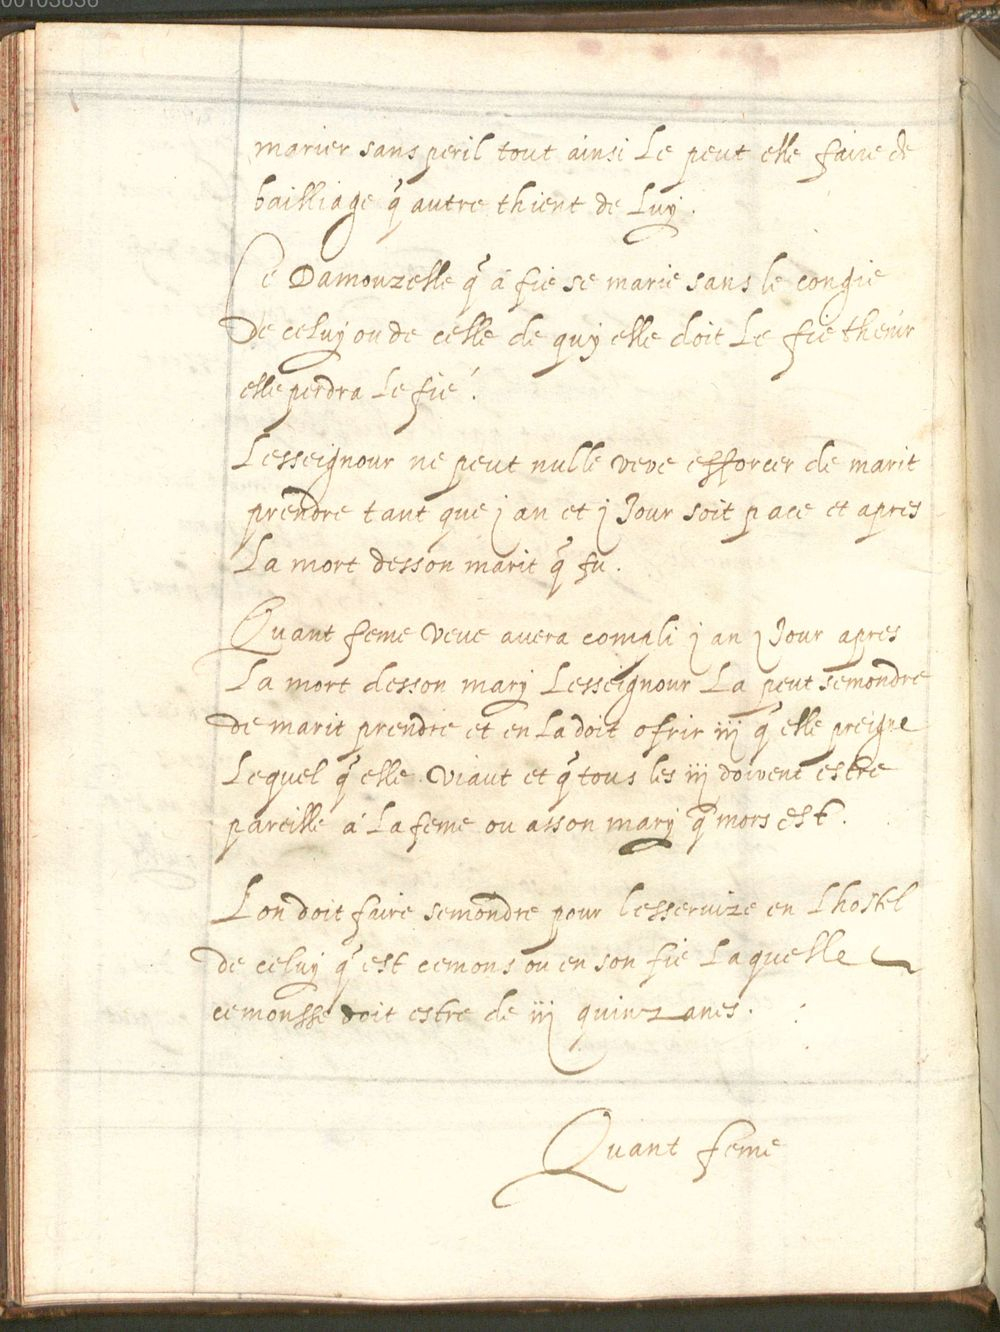 00103838
marier sans peril tout ainsi Le peut elle faire de
bailliage q̃ autre thient de Luy.
Ce Damouzelle q̃ a fie se marie sans le congie
De celuy ou de celle de quy elle doit Le fie theñir
elle perdra Le fie.
Lesseignour ne peut nulle veve efforcer de marit
prendre tant que j an et j Jour soit pace et apres
La mort desson marit q̃ fu.
Quant feme veve avera compli j an j Jour apres
La mort desson mary Lesseignour La peut semondre
de marit prendre et en La doit ofrir iij q̃ elle preigne
Lequel q̃ elle viaut et q̃ tous les iij doivent estre
pareille a La feme ou asson mary q̃ mors est.
Lon doit faire semondre pour lesservize en Lhostel
de celuy q̃ est cemons ou en son fie Laquelle
cemonsse doit estre de iij quinzanes.
Quant feme